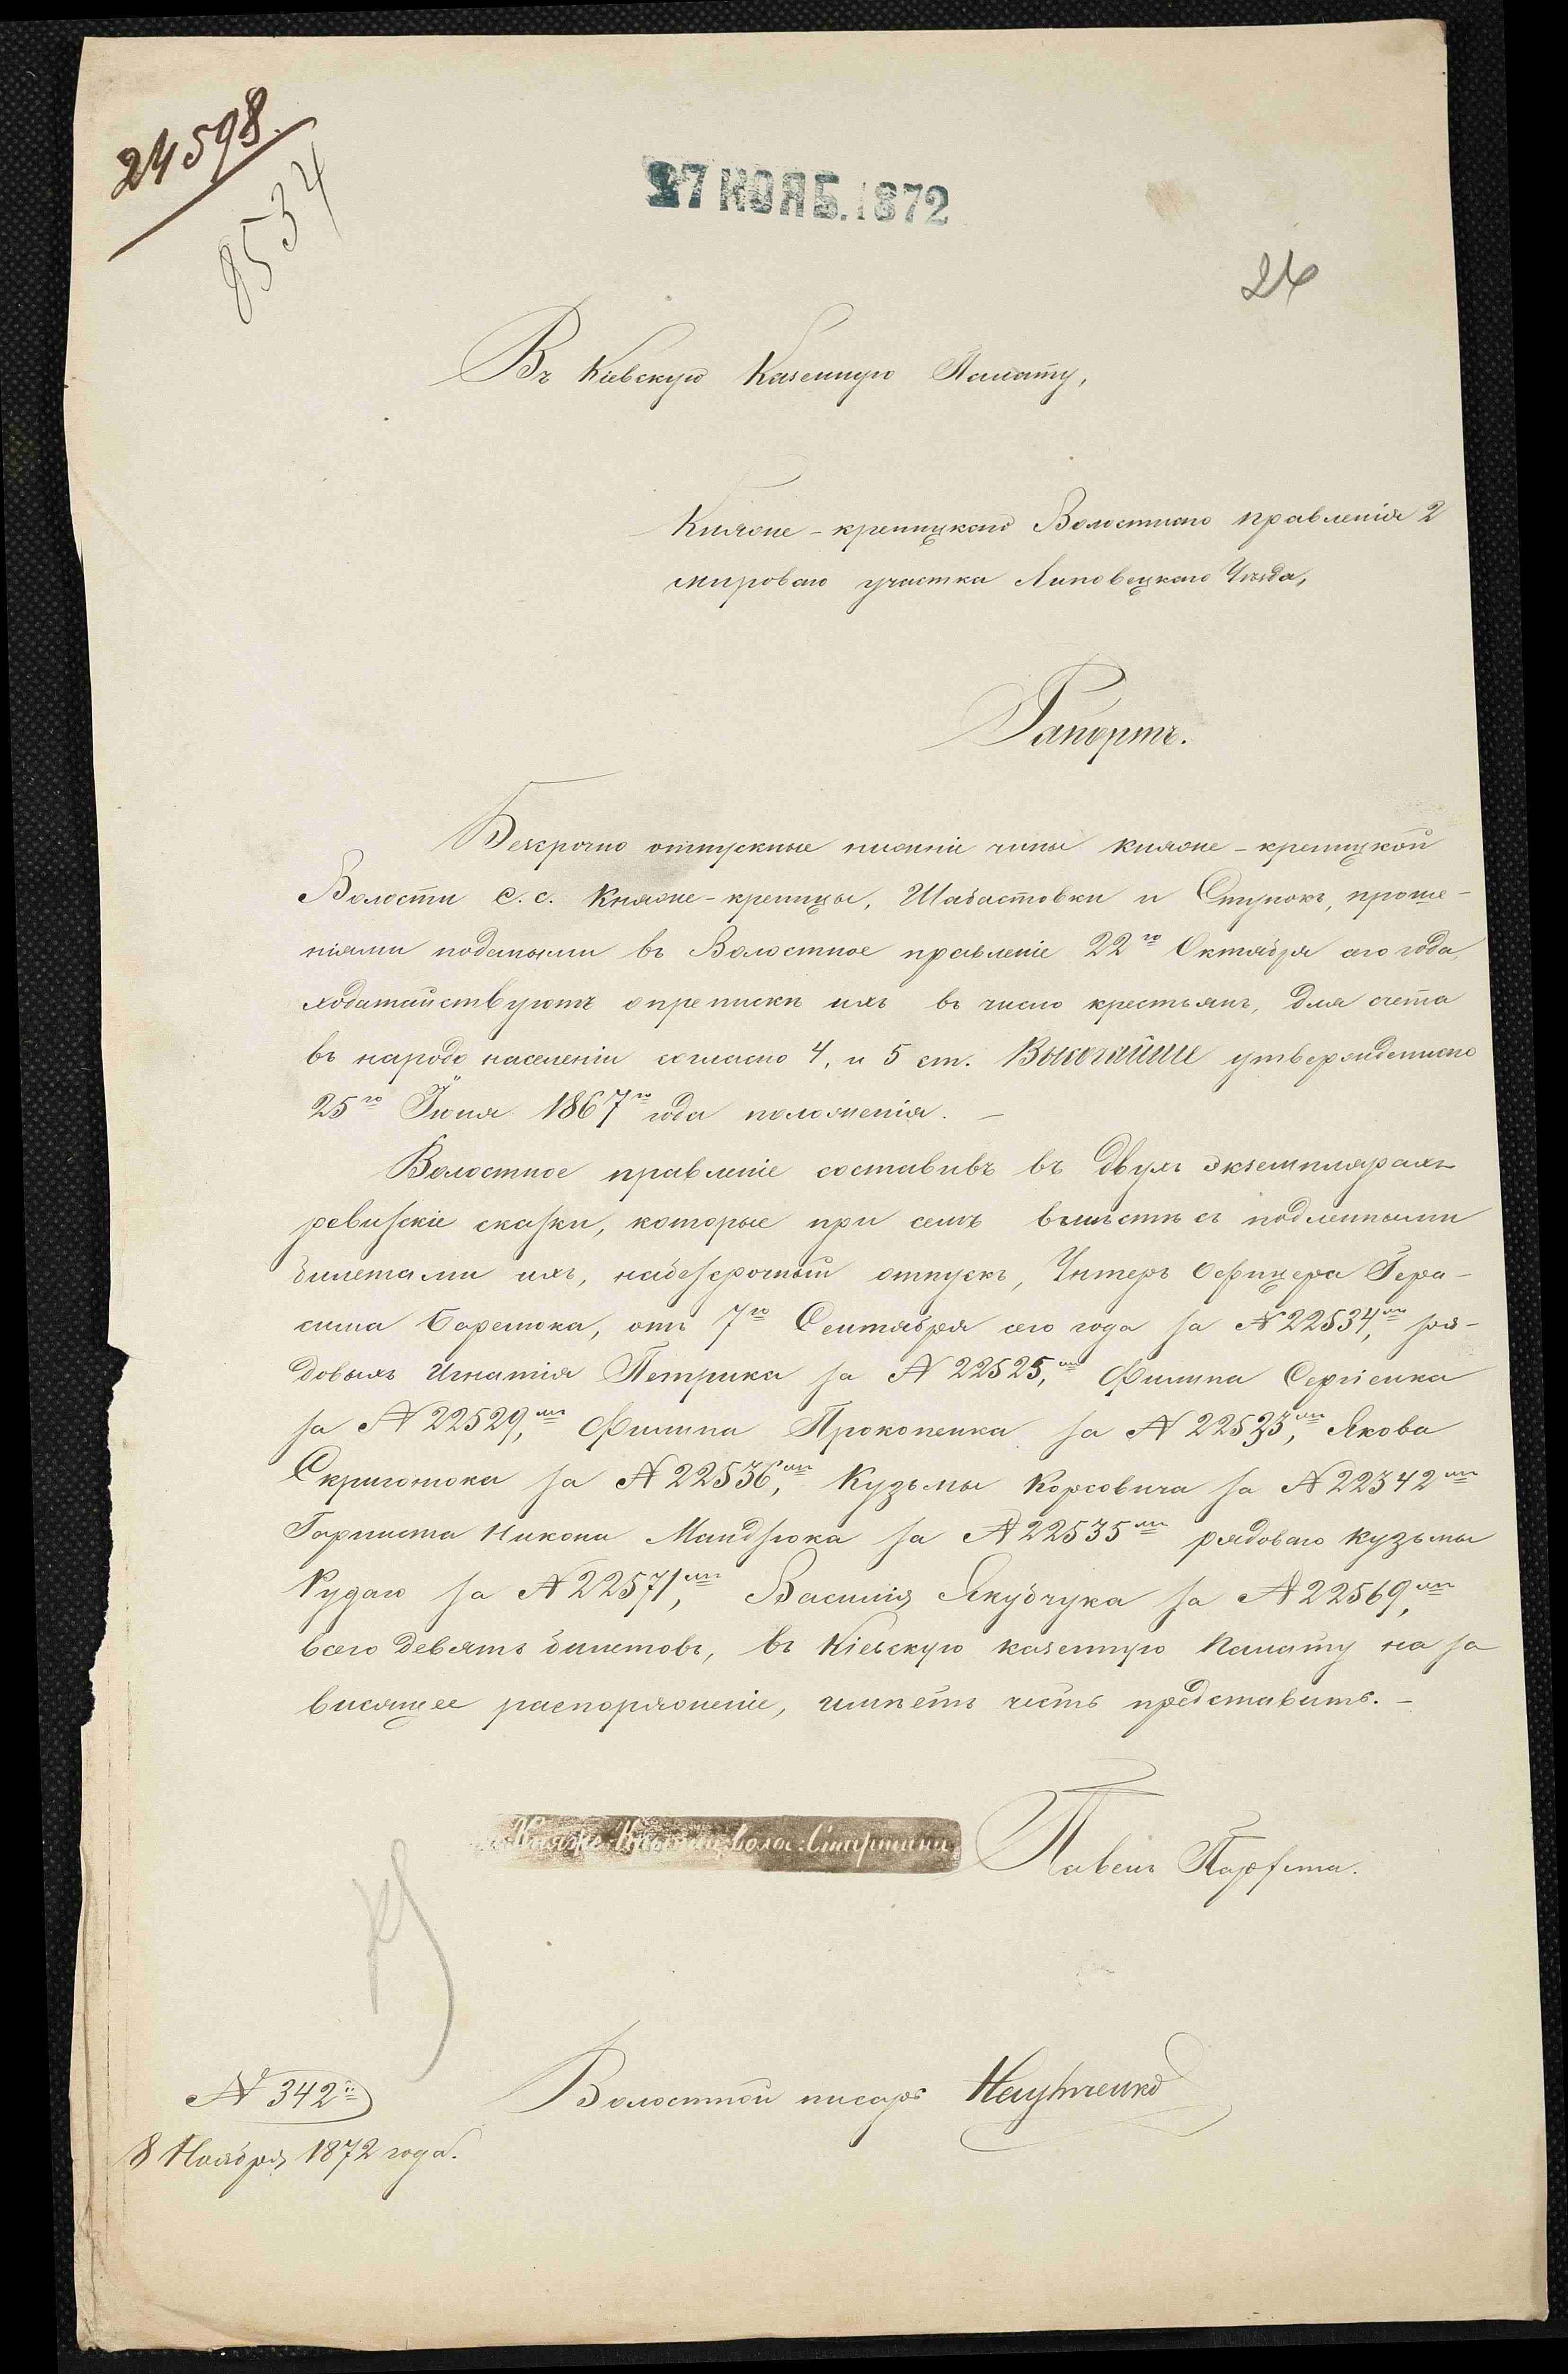 24598.
8534
27 НОЯБ. 1872
24
Въ Кіевскую Казенную Палату,
Княже-крепицкаго Волостнаго правленія 2
мироваго участка Липовецкаго Уѣзда,
Рапортъ.
Безсрочно отпускные нижніе чины Княже-крепицкой
Волости с. с. Княже-крепицы, Шабастовки и Ступокъ, проше-
ніями подаными въ Волостное правленіе 22го Октября сего года,
ходатайствуютъ опрепискѣ ихъ въ число крестьянъ, для счета
въ народо населеніи согласно 4, и 5 ст. Высочайше утвержденнаго
25го Іюня 1867го года положенія. —
Волостное правленіе составивъ въ двухъ экземплярахъ
ревизскіе сказки, которые при семъ вмѣстѣ съ подленными
билетами ихъ, набезсрочный отпускъ, Унтеръ Офицера Гера-
сима Баренюка, отъ 7го Сентября сего года за № 22534мъ, ря-
довыхъ Игнатія Петрика за № 22525,мъ Филипа Сергіенка
за № 22529,мъ Филипа Прокопенка за № 22523,мъ Якова
Скригонюка за № 22536,мъ Кузьмы Корсовича за № 22342мъ
Горниста Никона Мандзюка за № 22535мъ рядоваго Кузьмы
Рудаго за № 22571,мъ Василія Якубчука за № 22569,мъ
всего девять билетовъ, въ Кіевскую казенную Палату на за
висящее распоряженіе, имѣетъ честь представить. —
Княже-Крепицк. Волос. Старшина
Павелъ Парфета.
Волостной писарь
№ 342й
8 Ноября 1872 года.